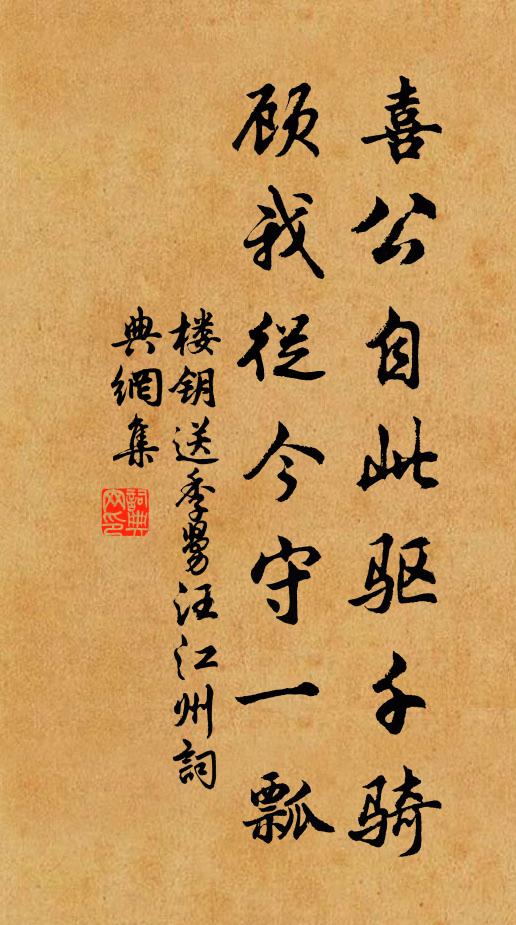 喜公自此驱千骑
顾我從今守一瓢
楼钥送季舅汪江州詞
典網集
詞典网印